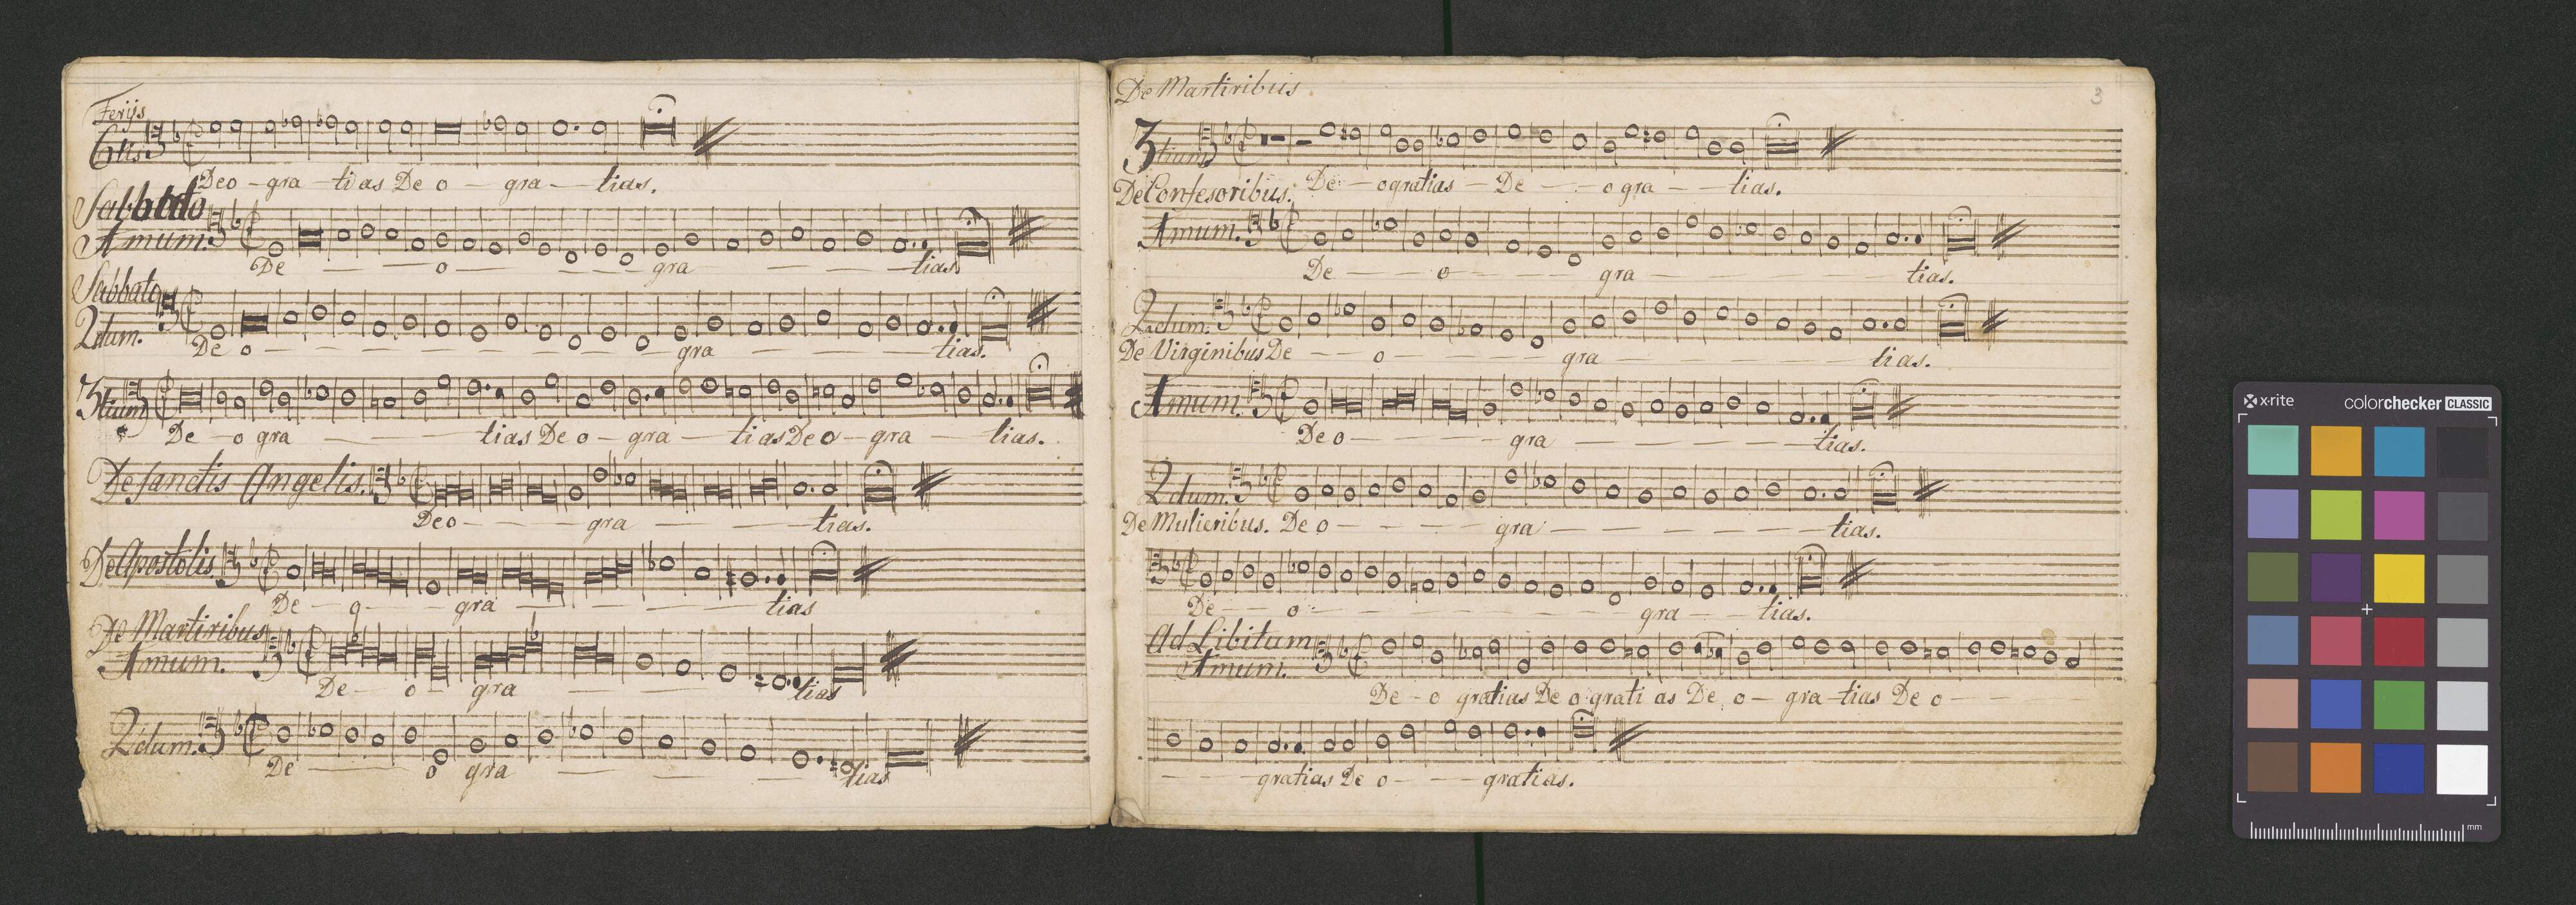 Ferijs
6tis.
Deo - gra - tias De o - gra - tias.
Sabbato
Amum.
De - o - gra - tias.
Sabbato
2dum.
De o - gra - tias.
3tium
De - o gra - tias De o - gra - tias De o - gra - tias.
De sanctis Angelis.
Deo - gra - tias.
De Apostolis.
De - o - gra - tias
De Martiribus
Amum.
De - o - gra - tias
2dum.
De - o gra - tias
De Martiribus.
3
3tium
De - o gratias - De - o gra - tias.
De Confesoribus.
Amum.
De - o - gra - tias.
2dum.
De - o - gra - tias.
De Virginibus
Amum.
De o - gra - tias.
2dum.
De o - gra - tias.
De Mulieribus.
De - o - gra - tias.
Ad Libitum
Amum.
De - o gratias De o grati as De o - gra - tias De o -
gratias De o - gratias.
x-rite
colorchecker CLASSIC
mm